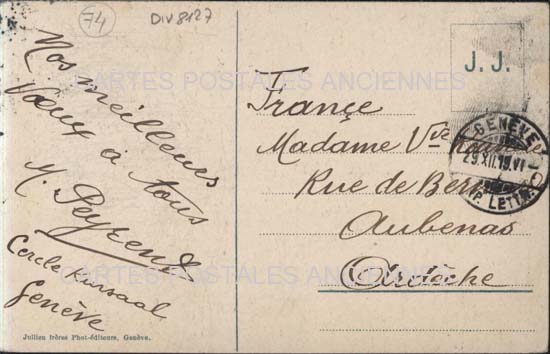 74
DIV8127
Nos meilleurs
Vœux à tous
M. Peyrend
Cercle Kursaal
Genève
Jullien frères Phot-éditeurs, Genève.
J. J.
GENÈVE
29.XII.
EXP. LETTR
France
Madame Vve
Rue de
Aubenas
Ardèche
CARTES POSTALES ANCIENNES
CARTES POSTALES ANCIENNES